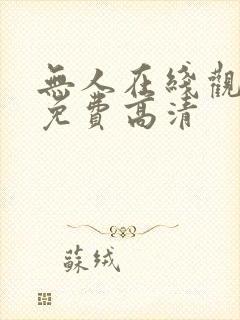 無人在綫觀
免費高清
蘇绒